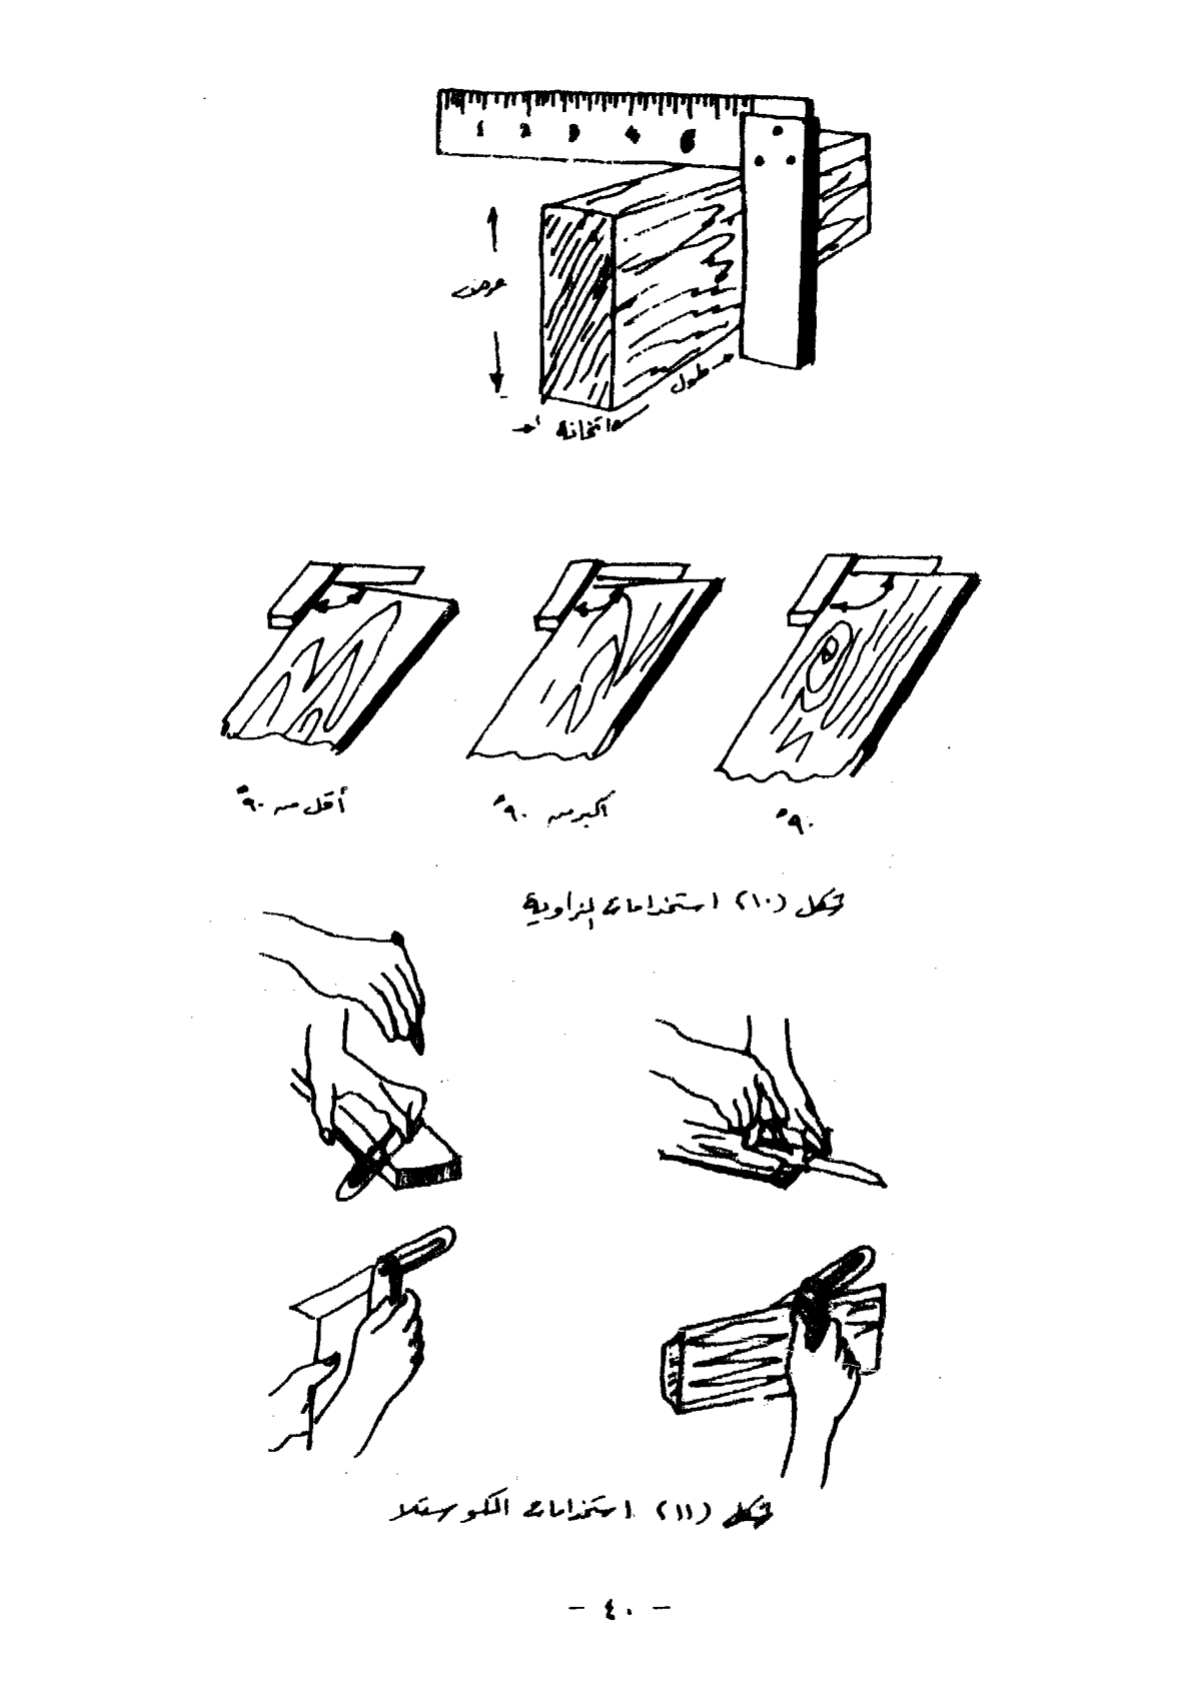 1 2 3 4 5
عرض
طول
تخانة
أقل من ٩٠°
أكبر من ٩٠°
٩٠°
شكل (١٠) استخدامات الزاوية
شكل (١١) استخدامات الكوستلا
- ٤٠ -